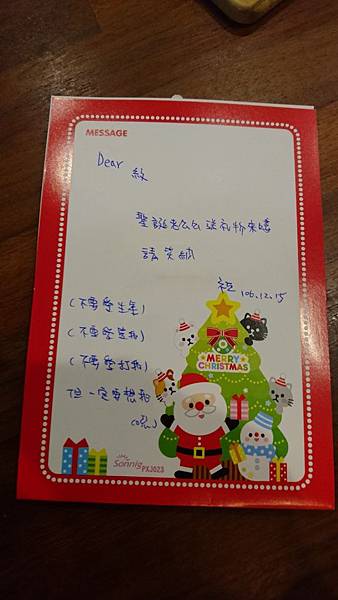 MESSAGE
Dear
聖誕老公公送礼物來嘍
請笑納
106.12.15
(不要愛生氣)
(不要愛
(不要愛打我)
但一定要想我
MERRY
CHRISTMAS
Sonnig
PXJ023